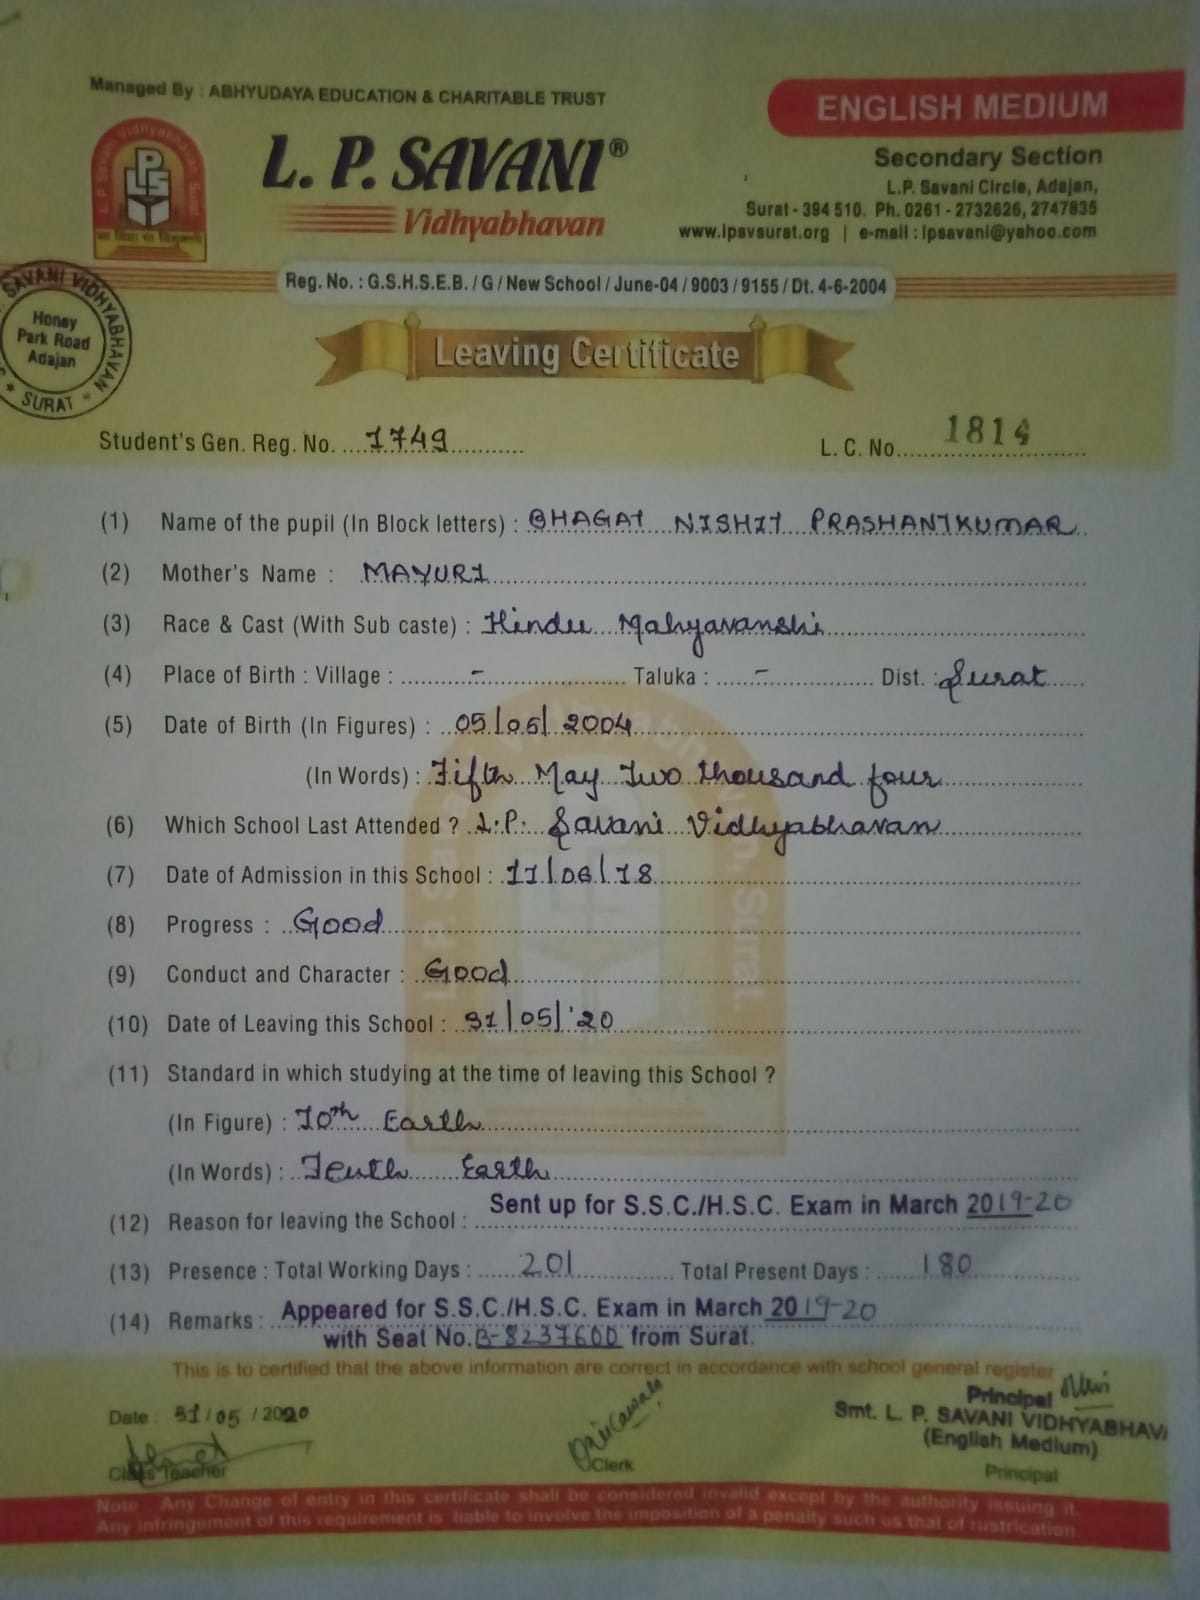 Managed By : ABHYUDAYA EDUCATION & CHARITABLE TRUST
ENGLISH MEDIUM
L. P. SAVANI®
Vidhyabhavan
Secondary Section
L.P. Savani Circle, Adajan,
Surat - 394 510. Ph. 0261 - 2732626, 2747835
www.lpsvsurat.org | e-mail : lpsavani@yahoo.com
L. P. Savani Vidhyabhavan Surat
LPSV
Reg. No. : G.S.H.S.E.B. / G / New School / June-04 / 9003 / 9155 / Dt. 4-6-2004
SAVANI VIDHYABHAVAN
Honey
Park Road
Adajan
SURAT
Leaving Certificate
Student's Gen. Reg. No. 1749
L. C. No. 1814
(1) Name of the pupil (In Block letters) : BHAGAT NISHIT PRASHANTKUMAR
(2) Mother's Name : MAYURI
(3) Race & Cast (With Sub caste) : Hindu Mahyavanshi
(4) Place of Birth : Village : - Taluka : - Dist. : Surat
(5) Date of Birth (In Figures) : 05/05/2004
(In Words) : Fifth May Two thousand four
(6) Which School Last Attended ? L.P. Savani Vidhyabhavan
(7) Date of Admission in this School : 11/06/18
(8) Progress : Good
(9) Conduct and Character : Good
(10) Date of Leaving this School : 31/05/'20
(11) Standard in which studying at the time of leaving this School ?
(In Figure) : 10th Earth
(In Words) : Tenth Earth
(12) Reason for leaving the School : Sent up for S.S.C./H.S.C. Exam in March 2019-20
(13) Presence : Total Working Days : 201 Total Present Days : 180
(14) Remarks : Appeared for S.S.C./H.S.C. Exam in March 2019-20
with Seat No. B-8237600 from Surat.
This is to certified that the above information are correct in accordance with school general register
Date : 31/05/2020
Principal
Smt. L. P. SAVANI VIDHYABHAVA
(English Medium)
Class Teacher
Clerk
Principal
Note : Any Change of entry in this certificate shall be considered invalid except by the authority issuing it.
Any infringement of this requirement is liable to involve the imposition of a penalty such us that of rustrication.